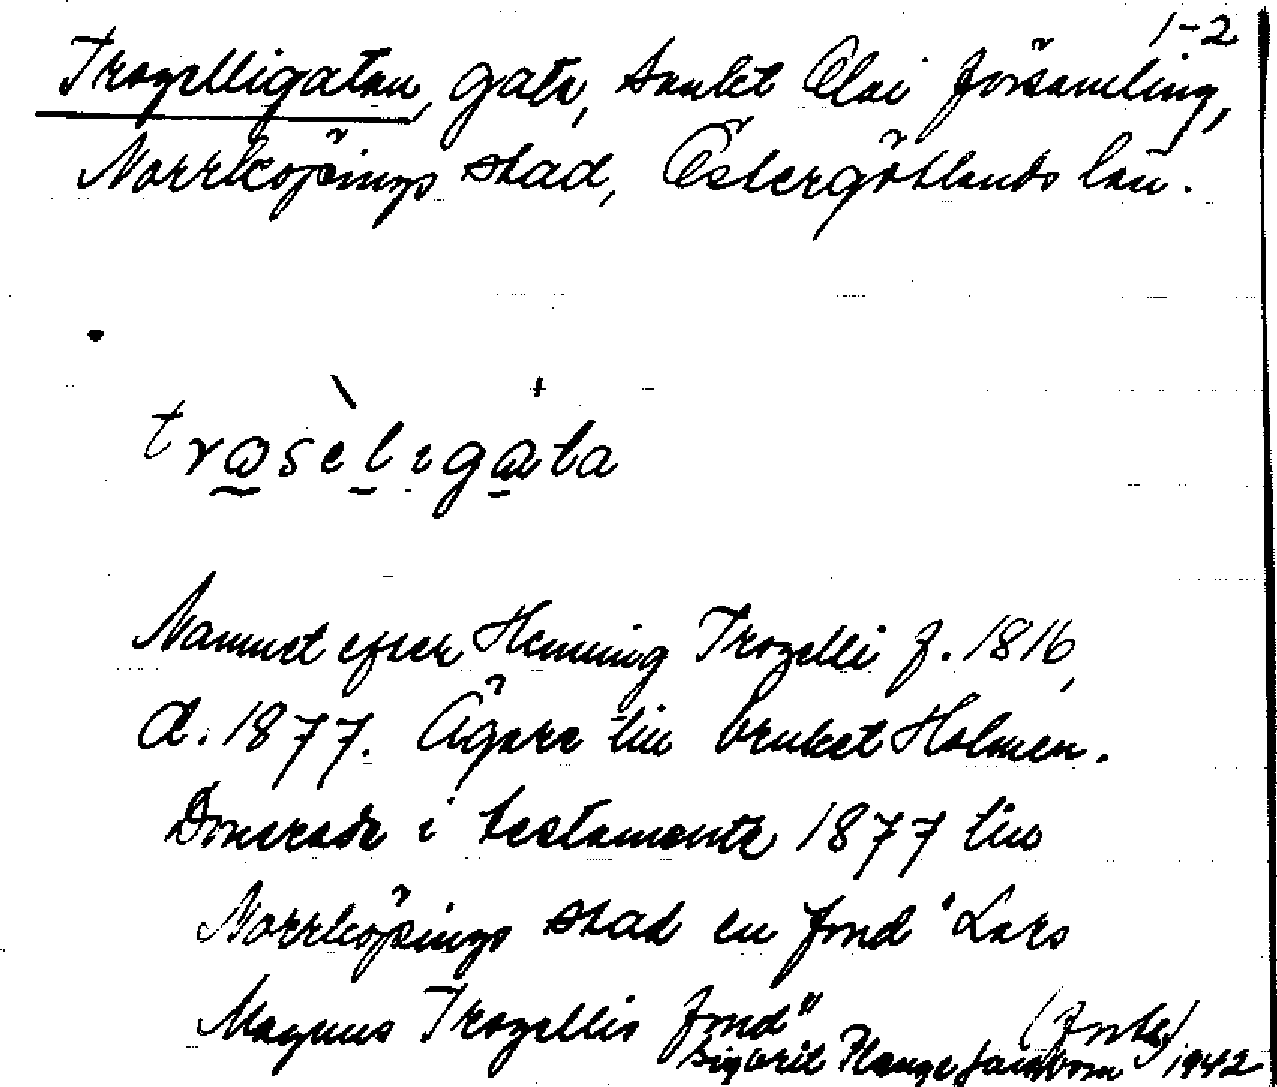 1-2
Trozelligatan, gata, Sankt Olai församling,
Norrköpings stad, Östergötlands län.
trɷsèlıgɑta
Namnet efter Henning Trozelli f. 1816,
d. 1877. Ägare till bruket Holmen.
Donerade i testamente 1877 till
Norrköpings stad en fond "Lars
Magnus Trozellis fond" (forts)
Sigbrit Plænge Jacobson 1942